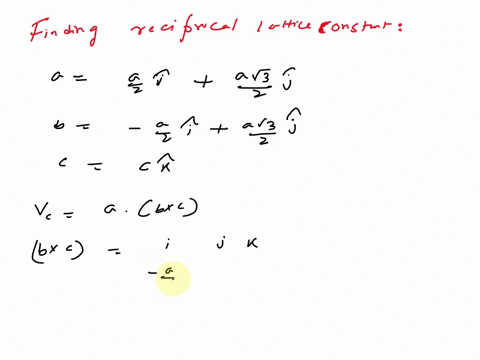 Finding reciprocal lattice constant:
a = a/2 î + a√3/2 ĵ
b = - a/2 î + a√3/2 ĵ
c = c k̂
Vc = a . (b×c)
(b×c) = i j k
- a